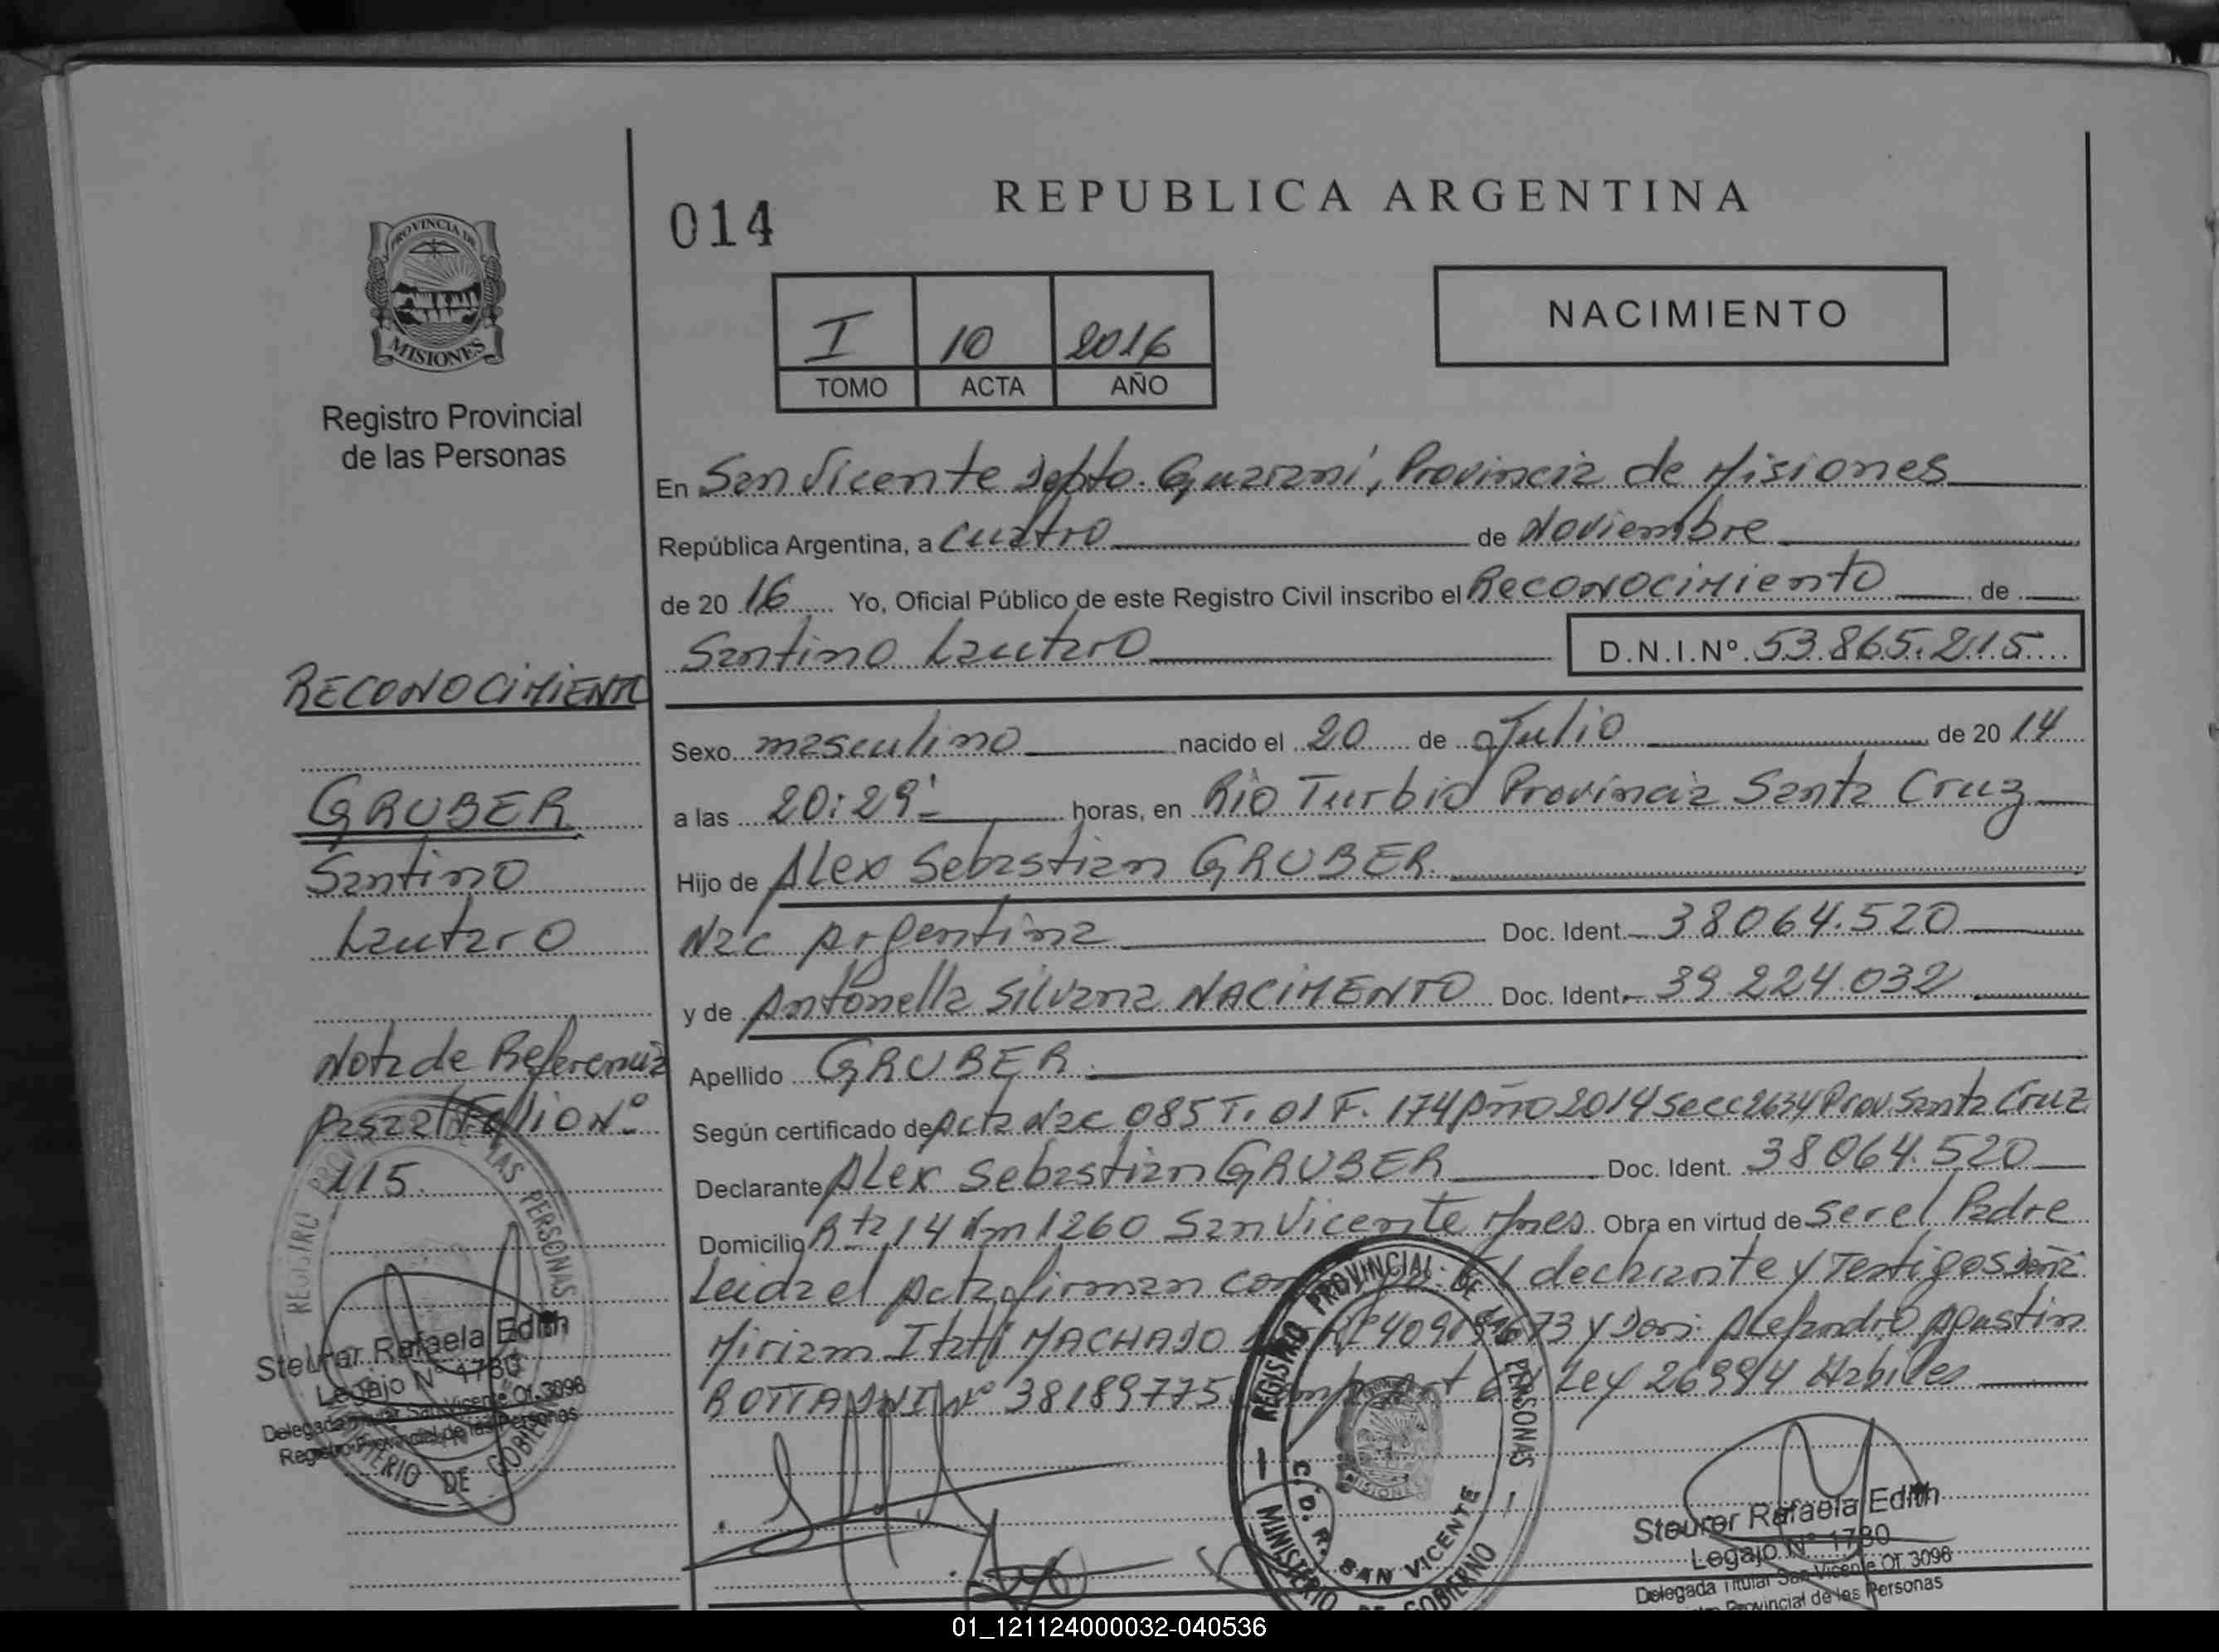 PROVINCIA DE
MISIONES
Registro Provincial
de las Personas
RECONOCIMIENTO
GRUBER
Santino
Lautaro
Nota de Referencia
Pasa al Folio Nº
115.
Steurer Rafaela Edith
Legajo Nº 1780
Delegada Titular San Vicente Of. 3096
Registro Provincial de las Personas
REGISTRO PROVINCIAL DE LAS PERSONAS
MINISTERIO DE GOBIERNO
014
REPUBLICA ARGENTINA
I 10 2016
TOMO ACTA AÑO
NACIMIENTO
En San Vicente Depto. Guaraní, Provincia de Misiones
República Argentina, a cuatro de Noviembre
de 2016 Yo, Oficial Público de este Registro Civil inscribo el Reconocimiento de
Santino Lautaro D.N.I.Nº 53.865.215
Sexo masculino nacido el 20 de Julio de 2014
a las 20:29' horas, en Río Turbio Provincia Santa Cruz
Hijo de Alex Sebastian GRUBER.
Nac Argentina Doc. Ident. 38064.520
y de Antonella Silvana NACIMENTO Doc. Ident. 39 224.032
Apellido GRUBER.
Según certificado de Acta Nac 085 T. 01 F. 174 Año 2014 Secc 2634 Prov. Santa Cruz
Declarante Alex Sebastian GRUBER Doc. Ident. 38064.520
Domicilio Rta 14 Km 1260 San Vicente Mnes. Obra en virtud de ser el Padre
Leida el Acta firman declarante y Testigos
Miriam Itatí MACHADO y Alejandro Agustin
BOTTA DNI Nº 38189775 Ley 26994 Habiles
REGISTRO PROVINCIAL DE LAS PERSONAS
C. D. R. SAN VICENTE
MINISTERIO DE GOBIERNO
MISIONES
Steurer Rafaela Edith
Legajo Nº 1780
Delegada Titular San Vicente Of. 3096
Provincial de las Personas
01_121124000032-040536